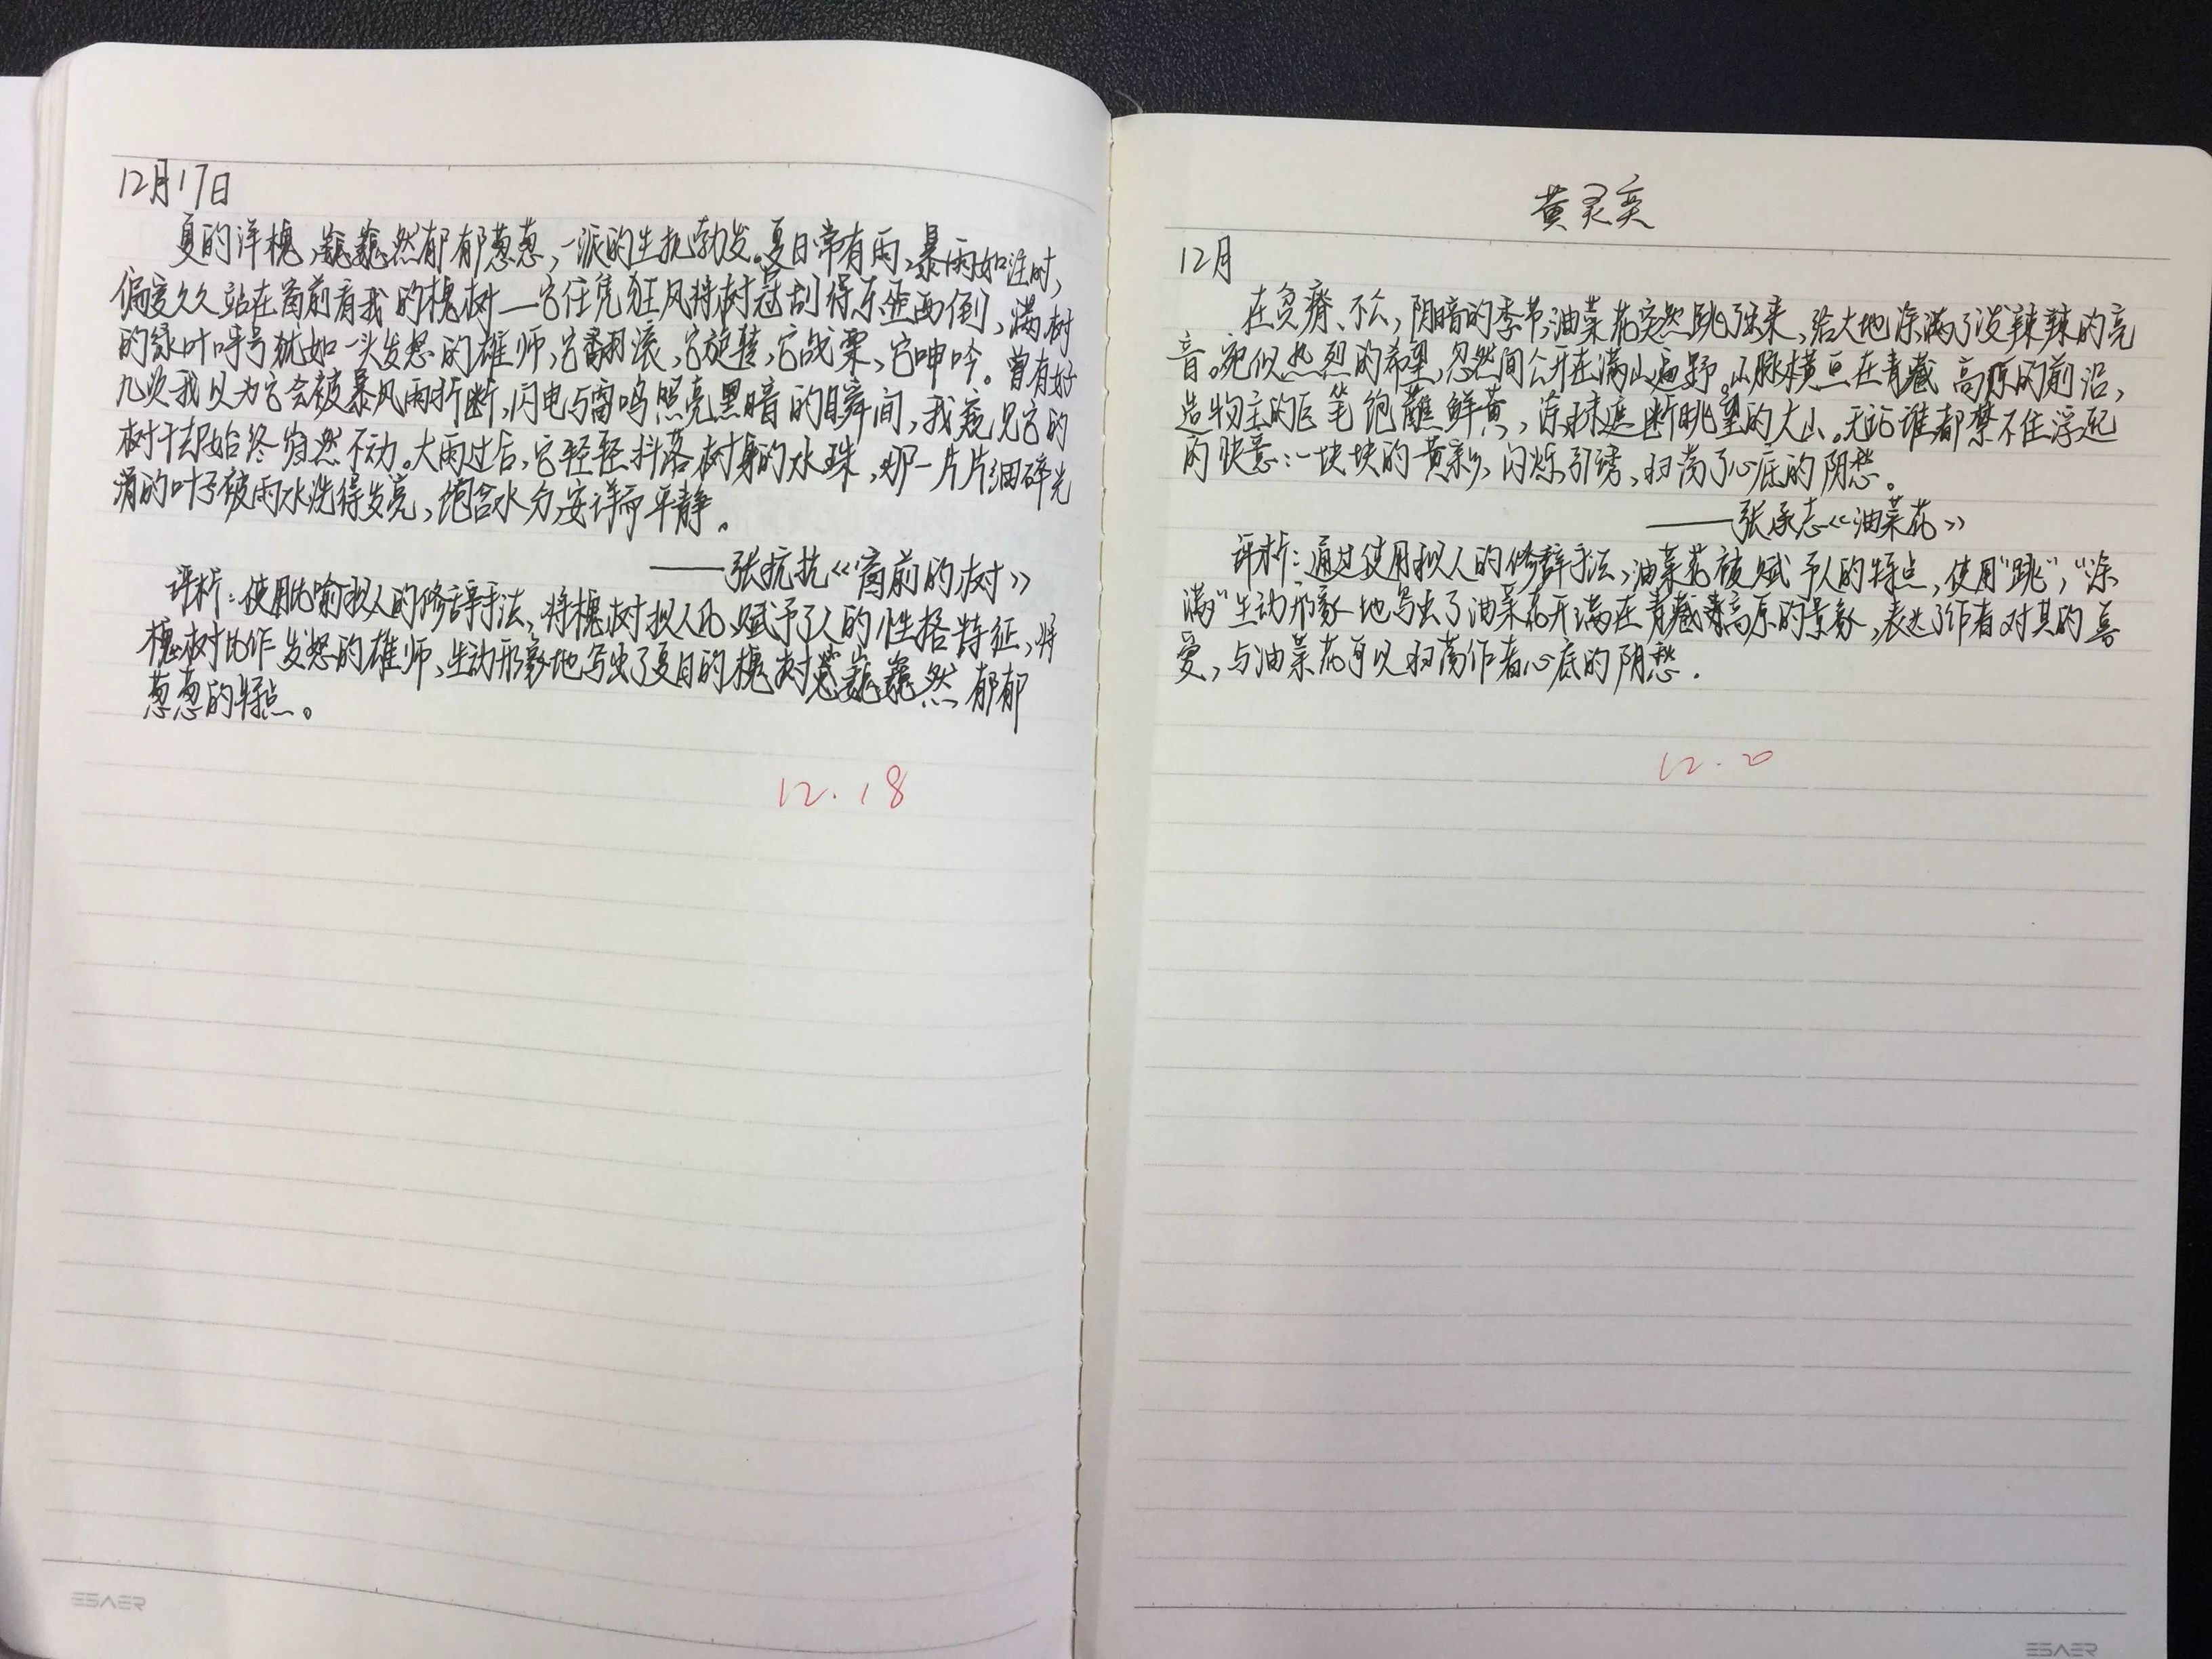 12月17日
夏的洋槐,巍巍然郁郁葱葱,一派的生机勃发。夏日常有雨,暴雨如注时,
偏爱久久站在窗前看我的槐树——它任凭狂风将树冠刮得东歪西倒,满树
的绿叶呼号犹如一头发怒的雄师,它翻滚,它旋转,它战栗、它呻吟。曾有好
几次我以为它会被暴风雨折断,闪电与雷鸣照亮黑暗的瞬间,我窥见它的
树干却始终岿然不动。大雨过后,它轻轻抖落树身的水珠,那一片片细碎光
滑的叶子被雨水洗得发亮,饱含水分,安详而平静。
——张抗抗《窗前的树》
评析:使用比喻拟人的修辞手法,将槐树拟人化,赋予了人的性格特征,将
槐树比作发怒的雄师,生动形象地写出了夏日的槐树巍巍然郁郁
葱葱的特点。
12.18
黄灵奕
12月
在贫瘠、不公,阴暗的季节,油菜花突然跳了出来,给大地涂满了泼辣辣的亮
音。宛似热烈的希望,忽然间公开在满山遍野。山脉横亘在青藏高原的前沿,
造物主的巨笔饱蘸鲜黄,涂抹遮断眺望的大山。无论谁都禁不住浮起
的快意:一块块的黄彩,闪烁引诱,扫荡了心底的阴愁。
——张承志《油菜花》
评析:通过使用拟人的修辞手法,油菜花被赋予人的特点,使用“跳”,“涂
满”生动形象地写出了油菜花开满在青藏高原的景象,表达了作者对其的喜
爱,与油菜花可以扫荡作者心底的阴愁.
12.20
ESAER
ESAER